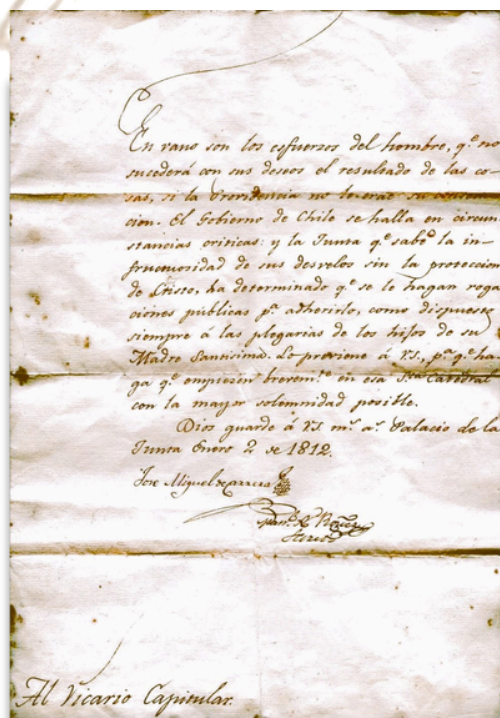 En vano son los esfuerzos del hombre, q.e no
sucederá con sus deseos el resultado de las co-
sas, si la Providencia no
cion. El Gobierno de Chile se halla en circun
stancias criticas: y la Junta q.e sabe la in-
fructuosidad de sus desvelos sin la proteccion
de Cristo, ha determinado q.e se le hagan roga
ciones públicas p.a adherirlo, como dispuesto
siempre á las plegarias de los hijos de su
Madre Santisima. Lo previene á VS, p.a q.e ha
ga q.e empiezen brevem.te en esa Catedral
con la mayor solemnidad posible.
Dios guarde á VS m.s a.s Palacio de la
Junta Enero 2 de 1812.
José Miguel de Carrera
Al Vicario Capitular.